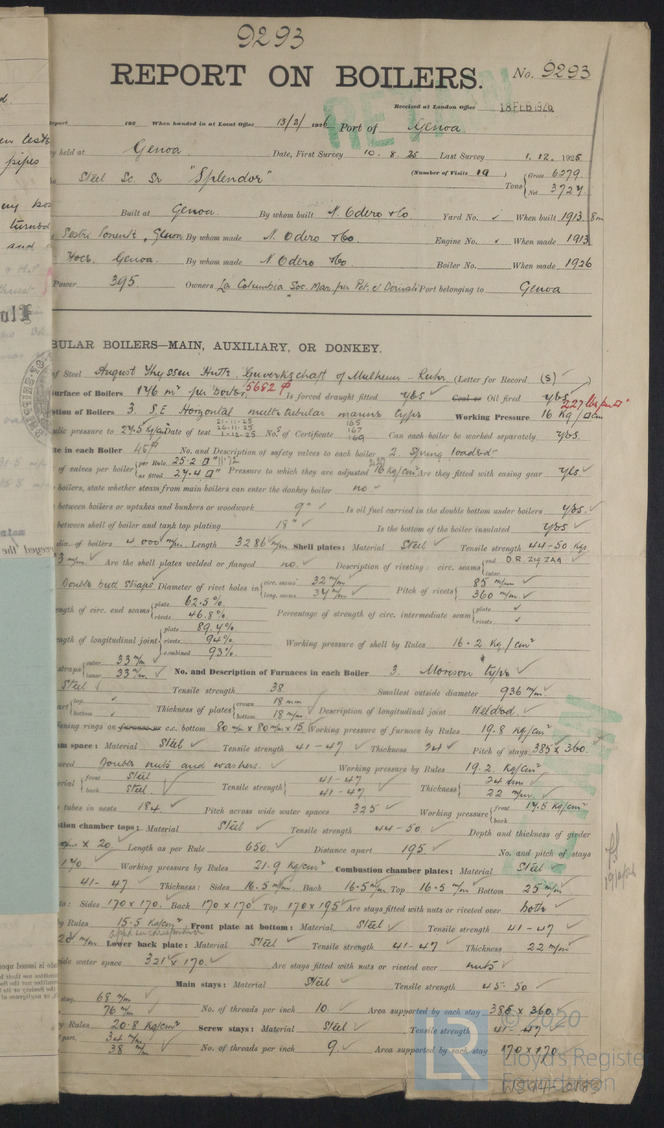 9293
REPORT ON BOILERS. No. 9293
Received at London Office 18 FEB 1926
Report 192 When handed in at Local Office 13/2/1926 Port of Genoa
held at Genoa Date, First Survey 10. 8. 25 Last Survey 1. 12. 1925
(Number of Visits 19)
Steel Sc. Sr "Splendor" Tons Gross 6279 Net 3727
Built at Genoa. By whom built N. Odero & Co Yard No. When built 1913. 8m
Sestri Ponente, Genoa By whom made N. Odero & Co. Engine No. When made 1913
Genoa. By whom made N. Odero & Co. Boiler No. When made 1926
Power 395. Owners La Columbia Soc. Mar. per Port belonging to Genoa
BULAR BOILERS—MAIN, AUXILIARY, OR DONKEY.
of Steel August Thyssen Hutte, Gewerkschaft of Mulheim - Ruhr (Letter for Record (S))
urface of Boilers 176 m² per boiler 5682 Is forced draught fitted yes Coal or Oil fired yes
tion of Boilers 3 S.E. Horizontal multitubular marine type Working Pressure 16 Kg/□cm 227
ulic pressure to 27.5 Date of test 21-11-25 26-11-25 1-12-25 No. of Certificate 165 167 169 Can each boiler be worked separately yes.
te in each Boiler No. and Description of safety valves to each boiler 2 Spring loaded
of valves per boiler per Rule 25.2 as fitted 27.4 Pressure to which they are adjusted 16 Kg/cm² Are they fitted with easing gear yes
boilers, state whether steam from main boilers can enter the donkey boiler no
between boilers or uptakes and bunkers or woodwork 9" Is oil fuel carried in the double bottom under boilers yes.
between shell of boiler and tank top plating 18" Is the bottom of the boiler insulated yes
dia. of boilers 4000 m/m. Length 3286 m/m. Shell plates: Material Steel Tensile strength 44-50 Kgs.
Are the shell plates welded or flanged no. Description of riveting: circ. seams end D.R. zig zag
Double butt straps Diameter of rivet holes in circ. seams 32 m/m long. seams 34 m/m Pitch of rivets 85 m/m 360 m/m
ength of circ. end seams plate 62.5% rivets 46.8% Percentage of strength of circ. intermediate seam plate rivets
ngth of longitudinal joint plate 89.4% rivets 94% combined 93% Working pressure of shell by Rules 16.2 Kg/cm²
straps outer 33 m/m inner 33 m/m No. and Description of Furnaces in each Boiler 3. Morison type
Steel Tensile strength 38 Smallest outside diameter 936 m/m
top bottom Thickness of plates crown 18 mm bottom 18 m/m Description of longitudinal joint Welded.
ening rings on furnace or c.c. bottom 80 m/m x 80 m/m x 15 Working pressure of furnace by Rules 19.8 Kg/cm²
am space: Material Steel Tensile strength 41-47 Thickness 24 Pitch of stays 385 x 360
ured Double nuts and washers. Working pressure by Rules 19.2. Kg/cm²
erial front Steel back Steel Tensile strength 41-47 41-47 Thickness 24 m/m 22 m/m.
tubes in nests 184 Pitch across wide water spaces 325 Working pressure front 17.5 Kg/cm² back
tion chamber tops: Material Steel Tensile strength 44-50 Depth and thickness of girder
x 20 Length as per Rule 650. Distance apart 195 No. and pitch of stays
170 Working pressure by Rules 21.9 Kg/cm² Combustion chamber plates: Material Steel
41-47 Thickness: Sides 16.5 m/m. Back 16.5 m/m Top 16.5 m/m Bottom 25 m/m
Sides 170 x 170. Back 170 x 170 Top 170 x 195 Are stays fitted with nuts or riveted over both
y Rules 15.5 Kg/cm² Front plate at bottom: Material Steel Tensile strength 41-47
Lower back plate: Material Steel Tensile strength 41-47 Thickness 22 m/m
ide water space 321 x 170. Are stays fitted with nuts or riveted over nuts
Main stays: Material Steel Tensile strength 45-50
stay, 68 m/m 76 m/m No. of threads per inch 10. Area supported by each stay 385 x 360
y Rules 20.8 Kg/cm² Screw stays: Material Steel Tensile strength 41-47
part, 34 m/m 38 m/m No. of threads per inch 9. Area supported by each stay 170 x 170
© 2020
Lloyd's Register
Foundation